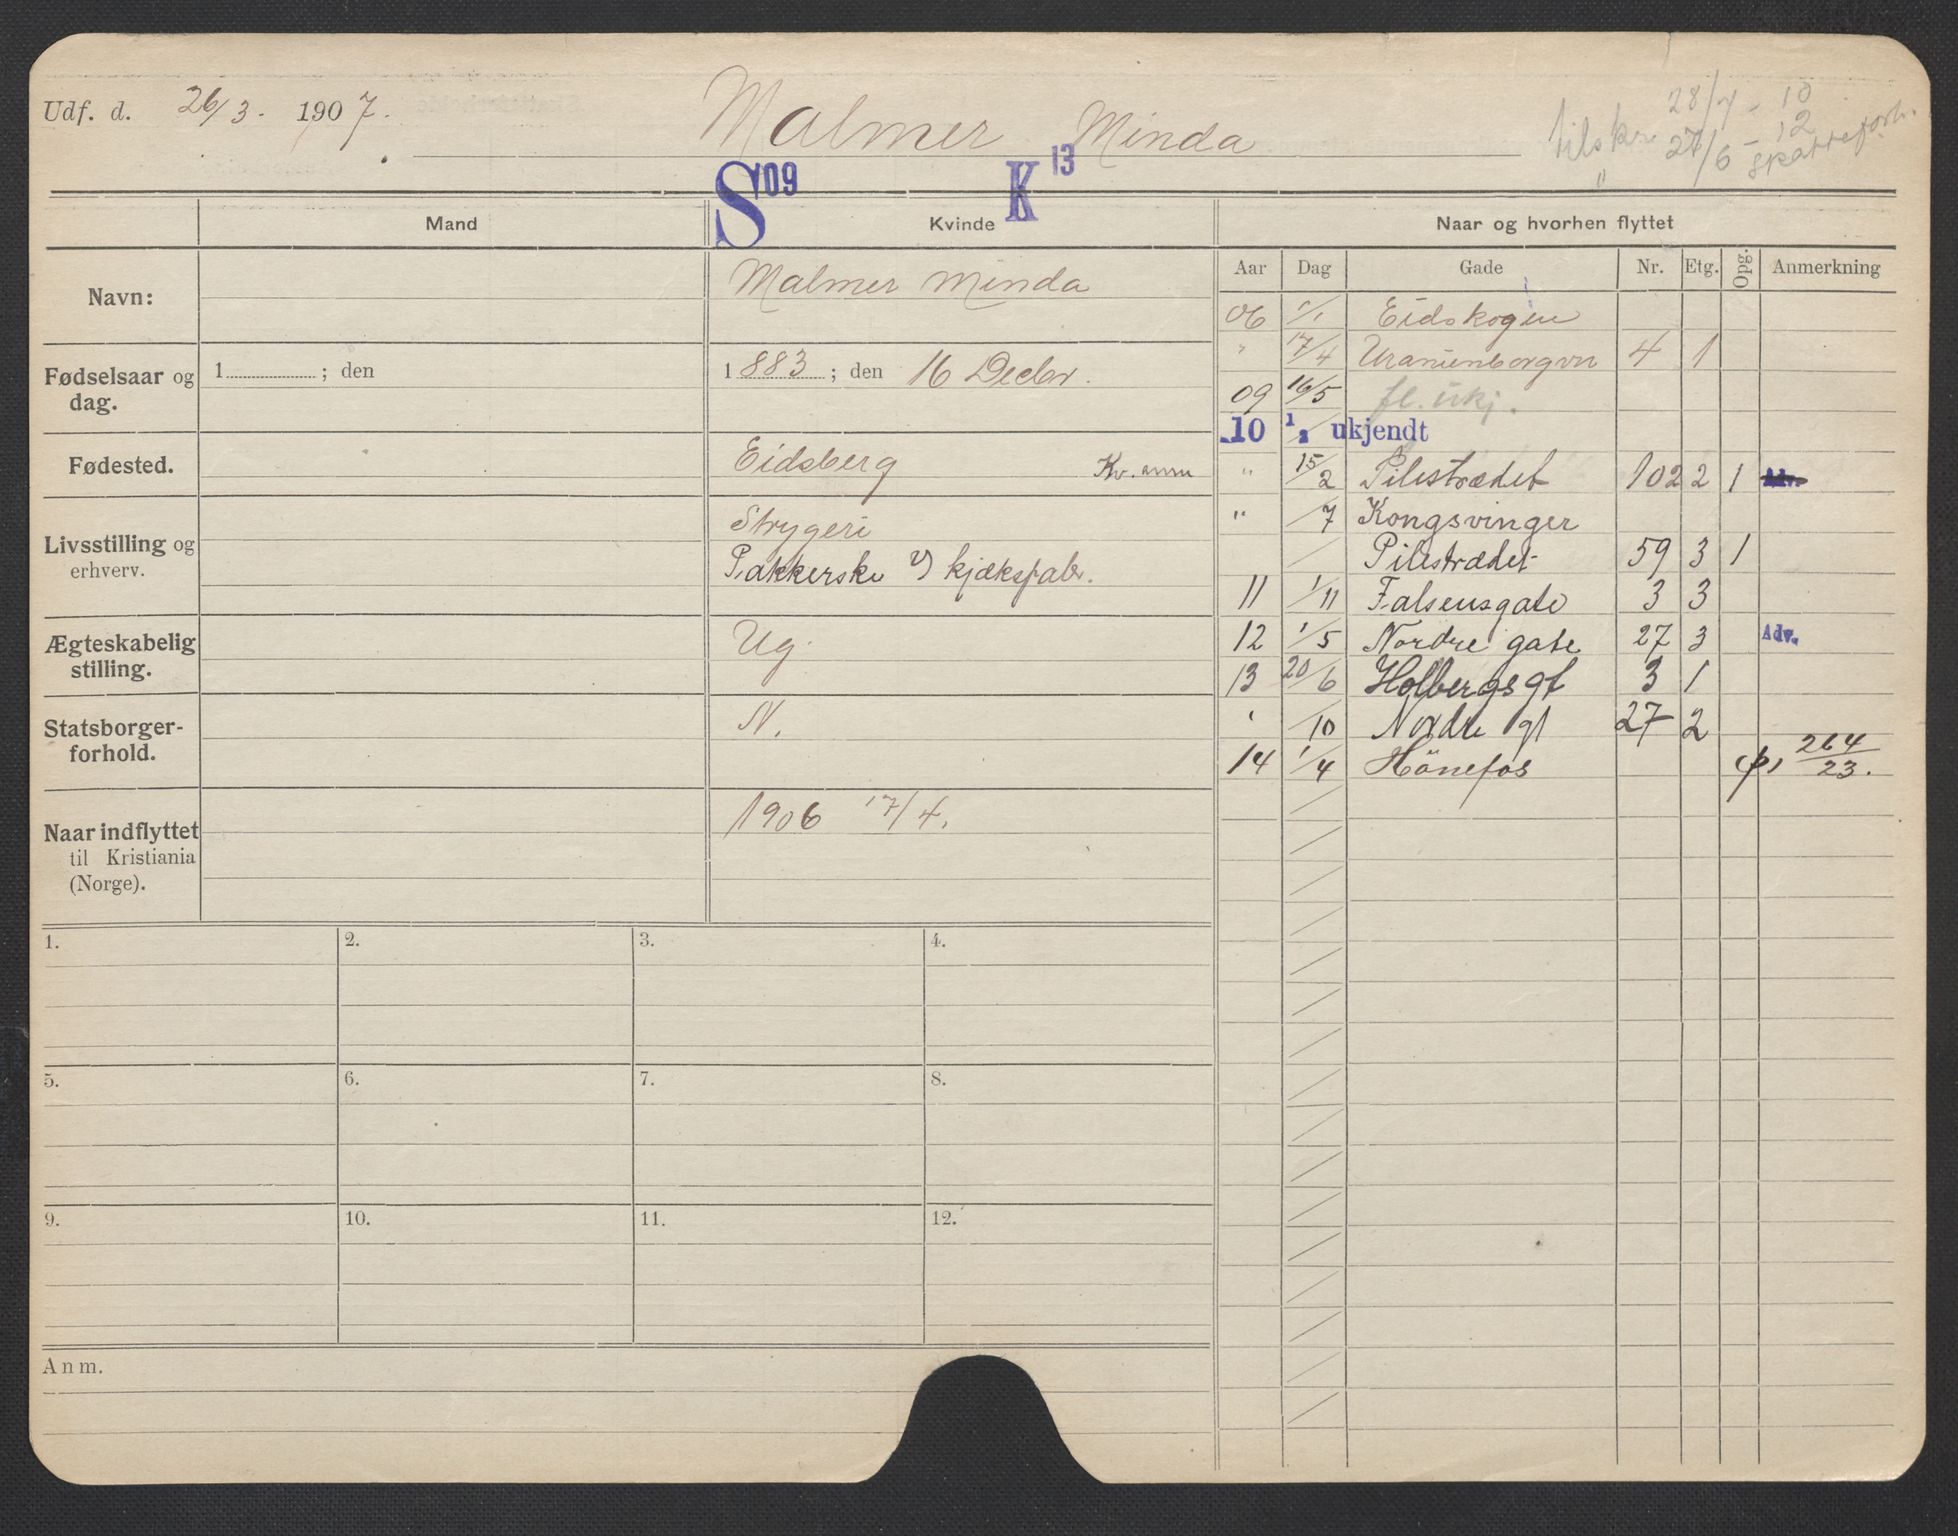 Udf. d. 26/3. 1907.
Malmer Minda
tilskr 28/7 - 10
" 27/6 - 12
skatteforh.
S 09 K 13
Mand Kvinde Naar og hvorhen flyttet
Aar Dag Gade Nr. Etg. Opg. Anmerkning
Navn: Malmer Minda
Fødselsaar og dag. 1 ; den 1883 ; den 16 Decbr.
Fødested. Eidsberg Kv. anm
Livsstilling og erhverv. Strygeri
Pakkerske v/ kjæksfabr.
Ægteskabelig stilling. Ug.
Statsborgerforhold. N.
Naar indflyttet til Kristiania (Norge). 1906 17/4.
06 1/1 Eidskogen
" 17/4 Uranienborgvn 4 1
09 16/5 fl. ukj.
10 1/2 ukjendt
" 15/2 Pilestrædet 102 2 1 Adv.
" /7 Kongsvinger
/ Pilestrædet 59 3 1
11 1/11 Falsensgate 3 3
12 1/5 Nordre gate 27 3 Adv.
13 20/6 Holbergs gt 3 1
' /10 Nordre gt 27 2
14 1/4 Hönefos 264/23.
1. 2. 3. 4.
5. 6. 7. 8.
9. 10. 11. 12.
Anm.